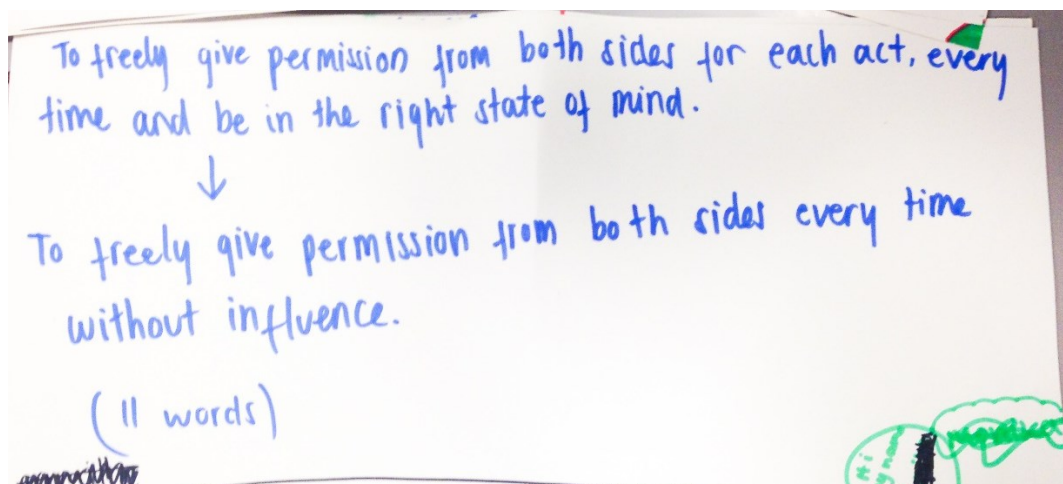 To freely give permission from both sides for each act, every
time and be in the right state of mind.
↓
To freely give permission from both sides every time
without influence.
(11 words)